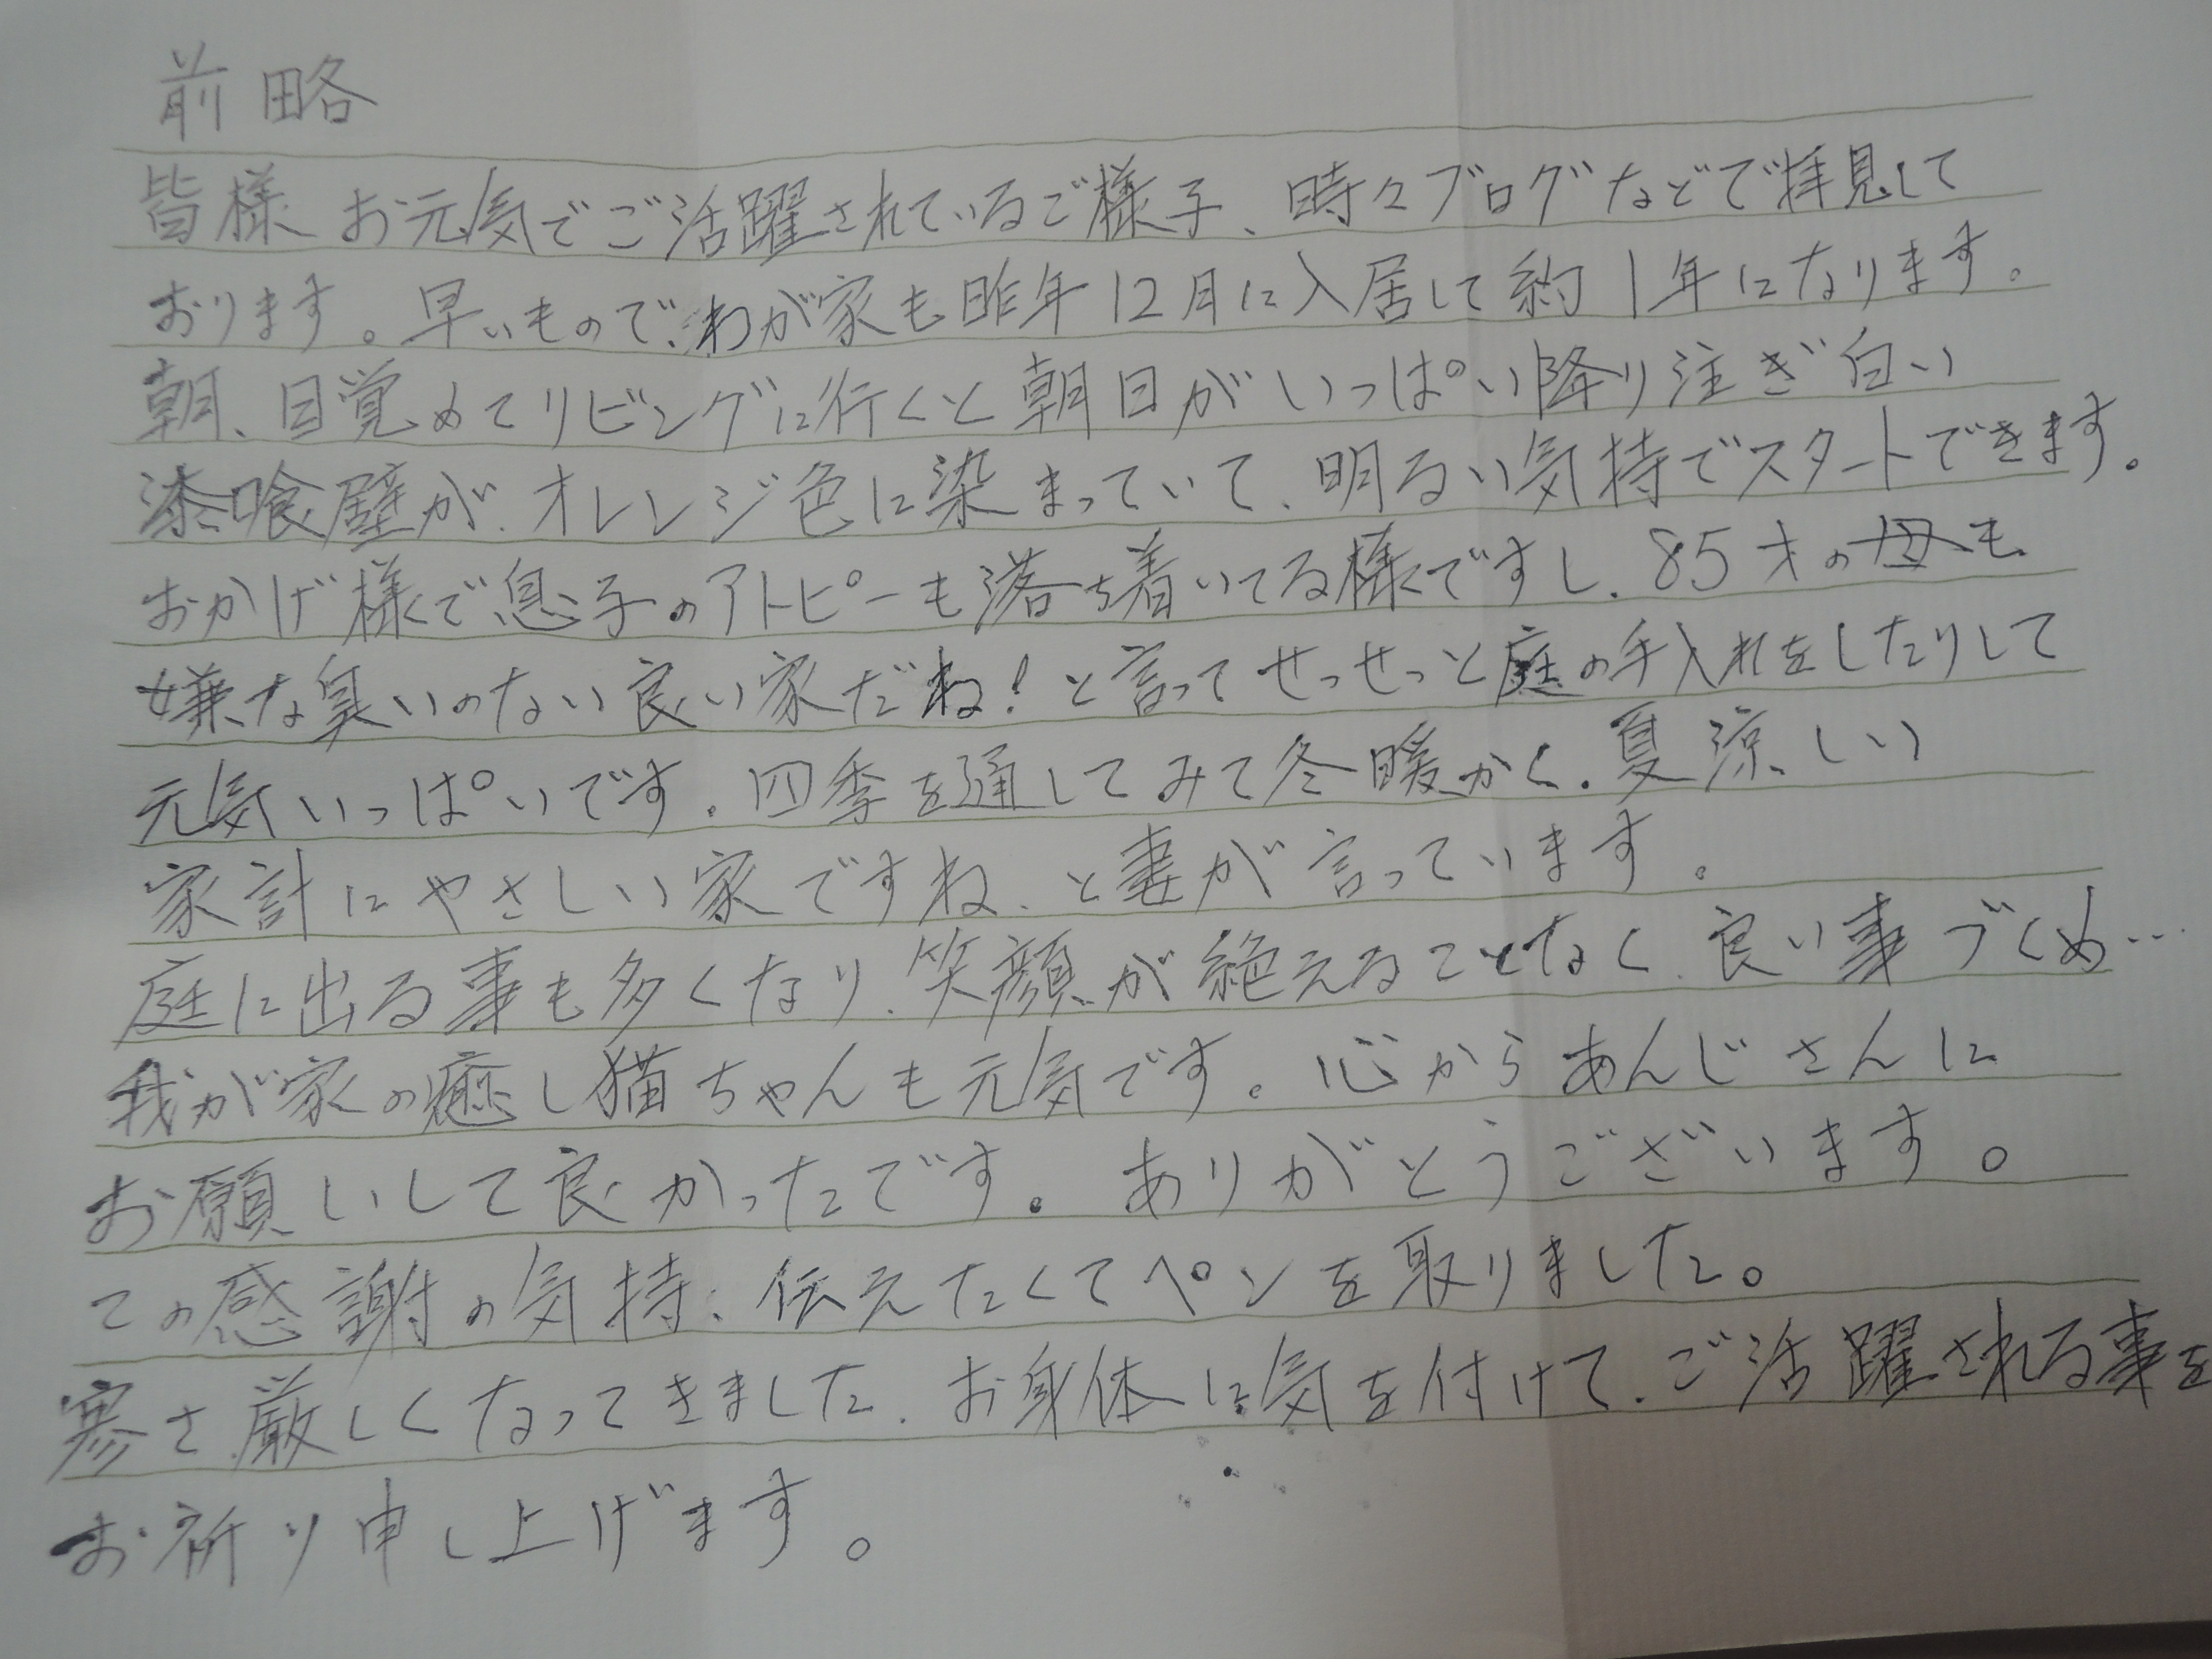 前略
皆様お元気でご活躍されているご様子、時々ブログなどで拝見して
おります。早いもので、わが家も昨年12月に入居して約1年になります。
朝、目覚めてリビングに行くと朝日がいっぱい降り注ぎ白い
漆喰壁が、オレンジ色に染まっていて、明るい気持でスタートできます。
おかげ様で息子のアトピーも落ち着いてる様ですし、85才の母も
嫌な臭いのない良い家だね!と言ってせっせっと庭の手入れをしたりして
元気いっぱいです。四季を通してみて冬暖かく、夏涼しい
家計にやさしい家ですね、と妻が言っています。
庭に出る事も多くなり、笑顔が絶えることなく、良い事づくめ…
我が家の癒し猫ちゃんも元気です。心からあんじさんに
お願いして良かったです。ありがとうございます。
この感謝の気持、伝えたくてペンを取りました。
寒さ厳しくなってきました、お身体に気を付けて、ご活躍される事を
お祈り申し上げます。